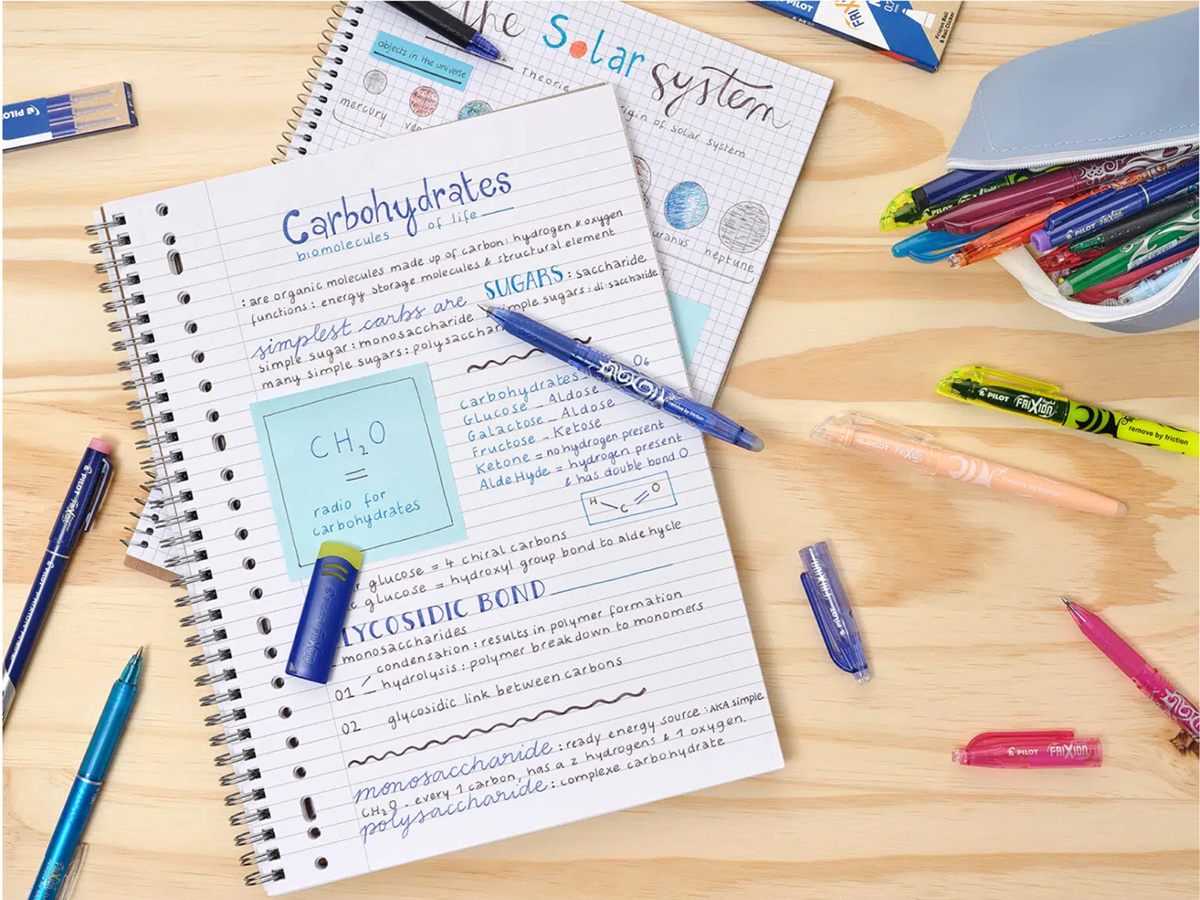 The Solar system
objects in the universe
Theorie
origin of solar system
mercury
uranus
neptune
Carbohydrates
biomolecules of life
: are organic molecules made up of carbon: hydrogen & oxygen
functions: energy storage molecules & structural element
simplest carbs are SUGARS: saccharide
simple sugar: monosaccharide simple sugars: di-saccharide
many simple sugars: polysaccharide
CH₂O
radio for
carbohydrates
Carbohydrates O₆
Glucose - Aldose
Galactose - Aldose
Fructose - Ketose
Ketone = no hydrogen present
AldeHyde = hydrogen present
& has double bond O
H C O
glucose = 4 chiral carbons
glucose = hydroxyl group bond to aldehycle
LYCOSIDIC BOND
monosaccharides
01 condensation: results in polymer formation
hydrolysis: polymer breakdown to monomers
02 glycosidic link between carbons
monosaccharide: ready energy source: AKA simple
CH₂O - every 1 carbon, has a 2 hydrogens & 1 oxygen.
polysaccharide: complexe carbohydrate
PILOT
PILOT FRIXION
PILOT
PILOT FRIXION
remove by friction
PILOT FRIXION
remove by friction
remove by friction
PILOT FRIXION
PILOT FRIXION